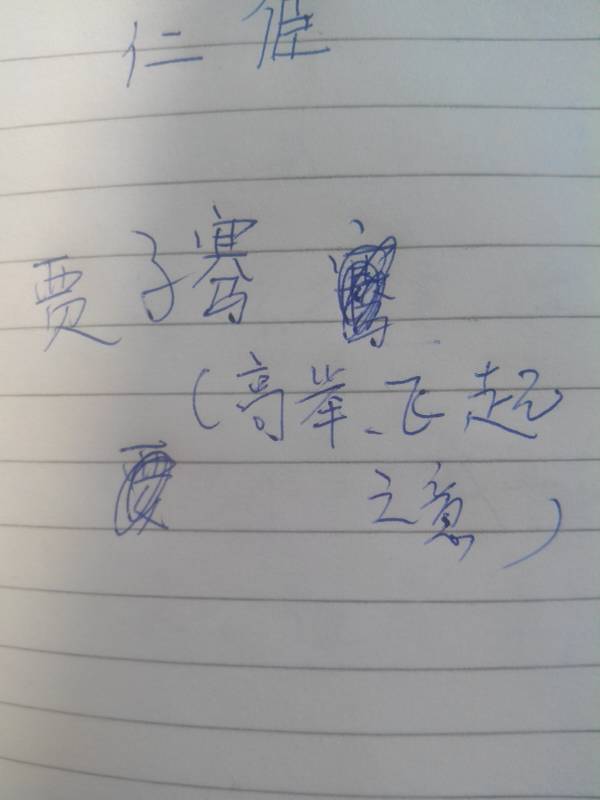 仁
贾子骞
(高举、飞起
之意)